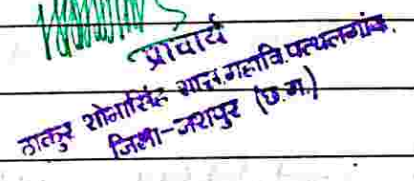 प्राचार्य
ठाकुर शोभासिंह शास.महावि.पत्थलगांव.
जिला-जशपुर (छ.ग.)